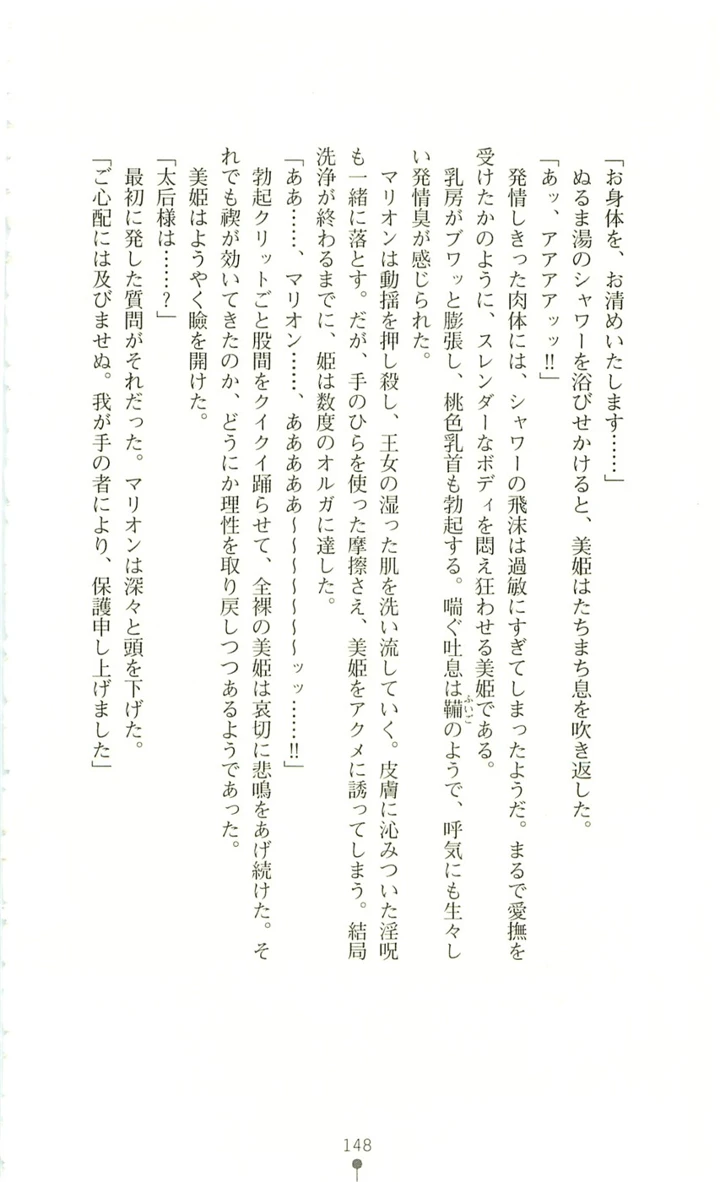 「お身体を、お清めいたします……」
ぬるま湯のシャワーを浴びせかけると、美姫はたちまち息を吹き返した。
「あッ、アアアアッッ!!」
発情しきった肉体には、シャワーの飛沫は過敏にすぎてしまったようだ。まるで愛撫を
受けたかのように、スレンダーなボディを悶え狂わせる美姫である。
乳房がブワッと膨張し、桃色乳首も勃起する。喘ぐ吐息は鞴のようで、呼気にも生々し
ふいご
い発情臭が感じられた。
マリオンは動揺を押し殺し、王女の湿った肌を洗い流していく。皮膚に沁みついた淫呪
も一緒に落とす。だが、手のひらを使った摩擦さえ、美姫をアクメに誘ってしまう。結局
洗浄が終わるまでに、姫は数度のオルガに達した。
「ああ……、マリオン……、あああああ～～～～～～ッッ……!!」
勃起クリットごと股間をクイクイ踊らせて、全裸の美姫は哀切に悲鳴をあげ続けた。そ
れでも禊が効いてきたのか、どうにか理性を取り戻しつつあるようであった。
美姫はようやく瞼を開けた。
「太后様は……?」
最初に発した質問がそれだった。マリオンは深々と頭を下げた。
「ご心配には及びませぬ。我が手の者により、保護申し上げました」
148